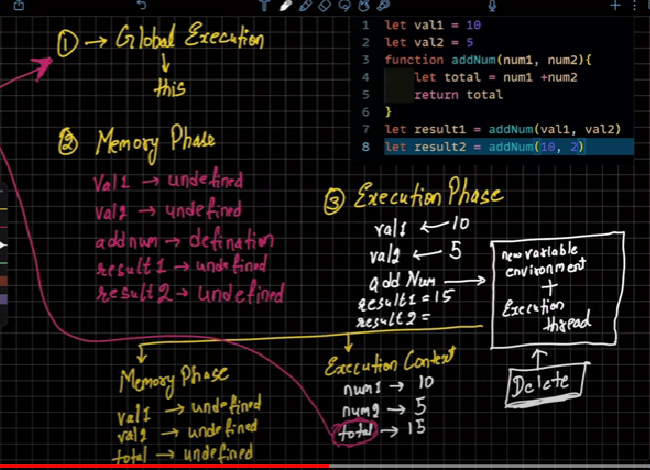 ① → Global Execution
this
② Memory Phase
val1 → undefined
val2 → undefined
addnum → defination
result1 → undefined
result2 → undefined
1 let val1 = 10
2 let val2 = 5
3 function addNum(num1, num2){
4 let total = num1 +num2
5 return total
6 }
7 let result1 = addNum(val1, val2)
8 let result2 = addNum(10, 2)
③ Execution Phase
val1 ← 10
val2 ← 5
add Num →
result1 = 15
result2 =
new variable
environment
+
Execution
thread
Delete
Memory Phase
val1 → undefined
val2 → undefined
total → undefined
Execution Context
num1 → 10
num2 → 5
total → 15